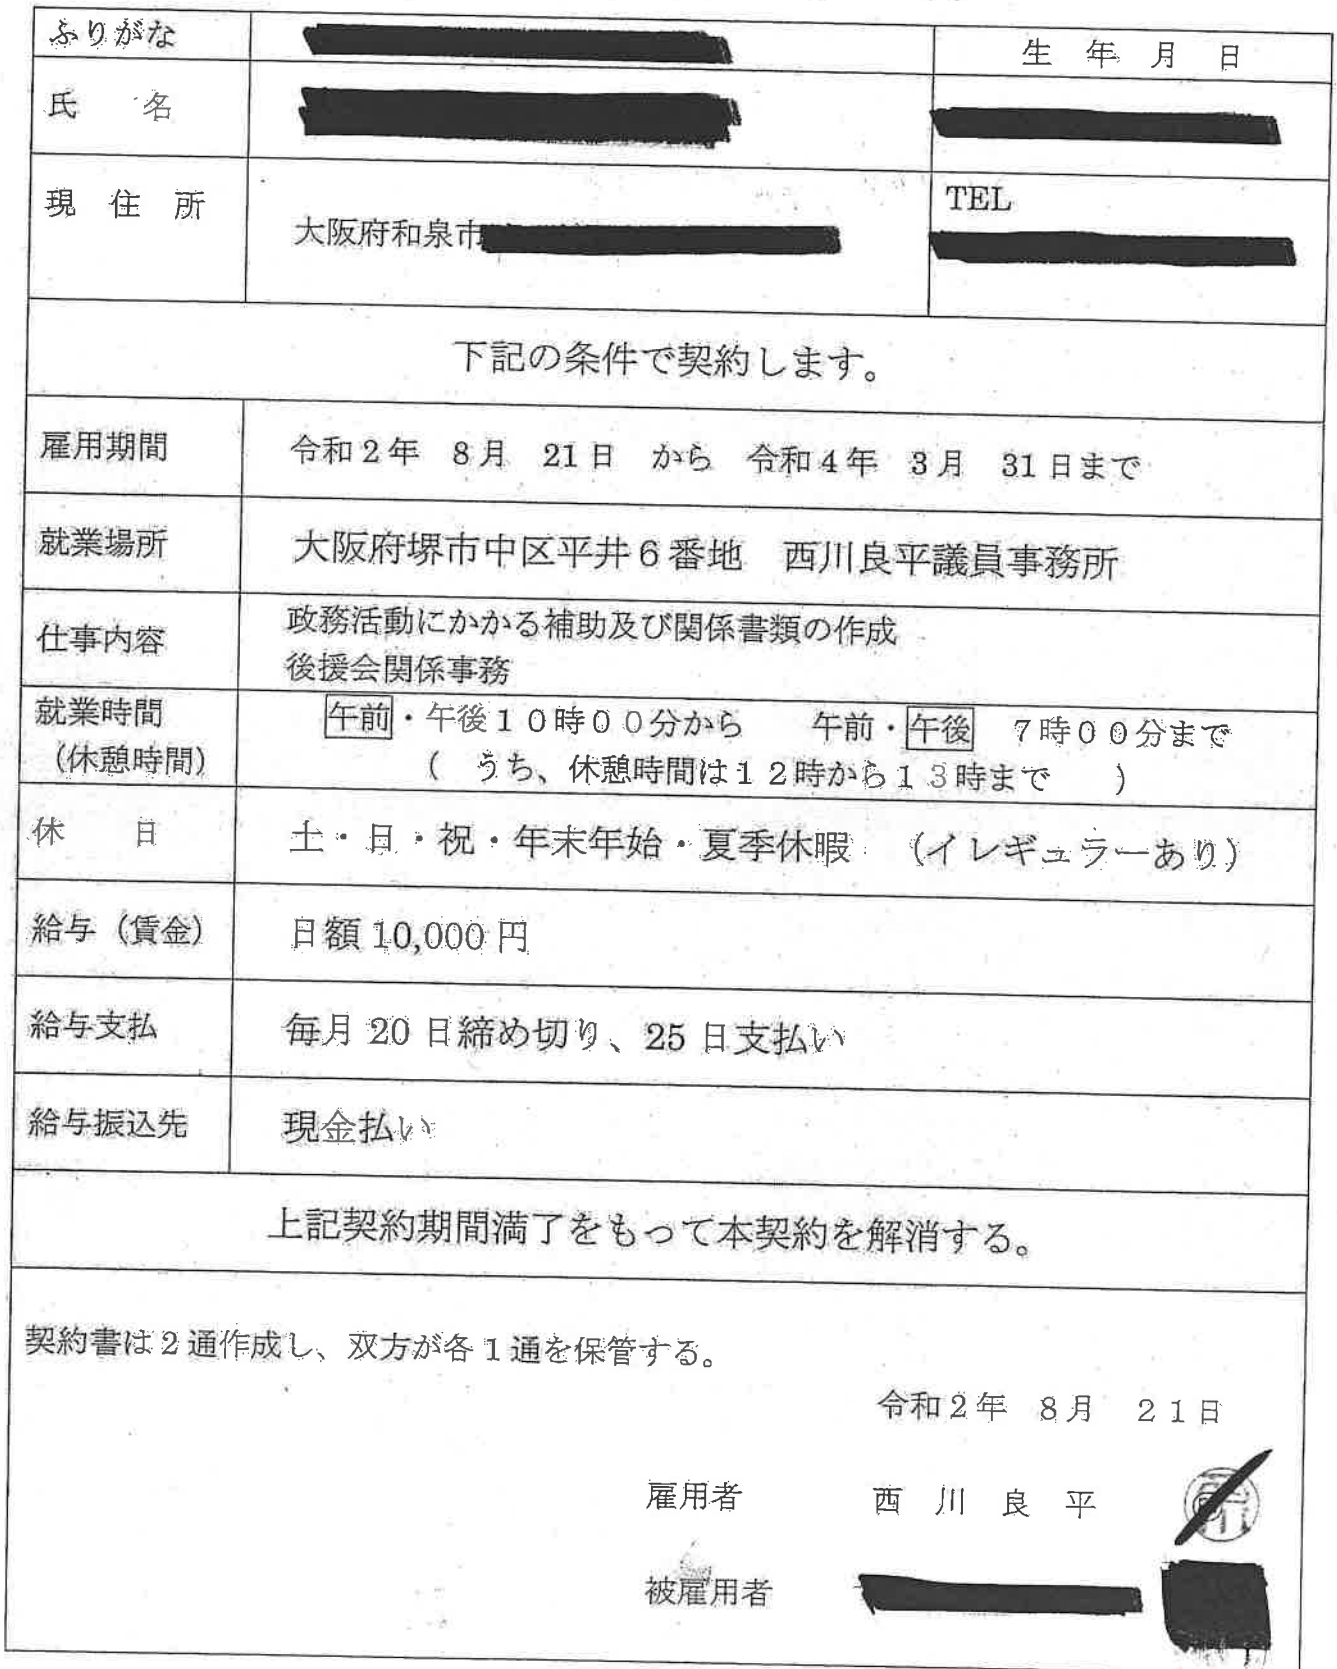 ふりがな
生 年 月 日
氏 名
現 住 所
大阪府和泉市
TEL
下記の条件で契約します。
雇用期間
令和2年 8月 21日 から 令和4年 3月 31日まで
就業場所
大阪府堺市中区平井6番地 西川良平議員事務所
仕事内容
政務活動にかかる補助及び関係書類の作成
後援会関係事務
就業時間
(休憩時間)
午前・午後10時00分から 午前・午後 7時00分まで
( うち、休憩時間は12時から13時まで )
休 日
土・日・祝・年末年始・夏季休暇 (イレギュラーあり)
給与(賃金)
日額 10,000 円
給与支払
毎月 20 日締め切り、25 日支払い
給与振込先
現金払い
上記契約期間満了をもって本契約を解消する。
契約書は2通作成し、双方が各1通を保管する。
令和2年 8月 21日
雇用者 西 川 良 平
被雇用者